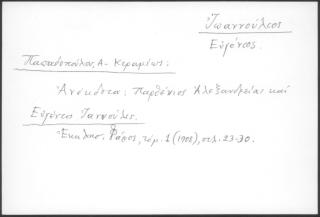 Ἰωαννούλιος
Εὐγένιος.
Παπαδοπούλου, Α- Κεραμέως:
Ἀνέκδοτα: Παρθένιος Ἀλεξανδρείας καὶ
Εὐγένιος Γιαννούλης.
Ἐκκλησ. Φάρος, τόμ. 1 (1908), σελ. 23-30.